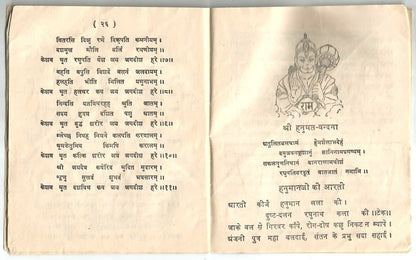 ( २६ )
वितरसि दिक्षु रणे दिक्पति कमनीयम् ।
दशमुख मौलि बलिं रमणीयम् ॥
केशव धृत रघुपति वेष जय जगदीश हरे ॥७॥
वहसि वपुषि विशदे वसनं जलदाभम् ।
हलहति भीति मिलित यमुनाभम् ॥
केशव धृत हलधर रूप जय जगदीश हरे ॥८॥
निन्दसि यज्ञविधेरहह श्रुति जातम् ।
सदय हृदय दर्शित पशु घातम् ॥
केशव धृत बुद्ध शरीर जय जगदीश हरे ॥९॥
म्लेच्छ निवह निधने कलयसि करवालम् ।
धूमकेतुमिव किमपि करालम् ॥
केशव धृत कल्कि शरीर जय जगदीश हरे ॥१०॥
श्री जयदेव कवेरिद मुदित मुदारम् ।
श्रृणु सुखदं शुभदं भवसारम् ॥
केशव धृत दशविध रूप जय जगदीश हरे ॥११॥
राम
श्री हनुमत-वन्दना
अतुलितबलधामं हेमशैलाभदेहं
दनुजवनकृशानुं ज्ञानिनामग्रगण्यम् ।
सकलगुणनिधानं वानराणामधीशं
रघुपतिवरदूतं वातजातं नमामि ॥
हनुमानजी की आरती
आरती कीजै हनुमान लला की ।
दुष्ट-दलन रघुनाथ कला की ॥टेक॥
जाके बल से गिरवर काँपे, रोग-दोष कछु निकट न झाँपे ।
अंजनी पुत्र महा बलदाई, संतन के प्रभु सदा सहाई ।